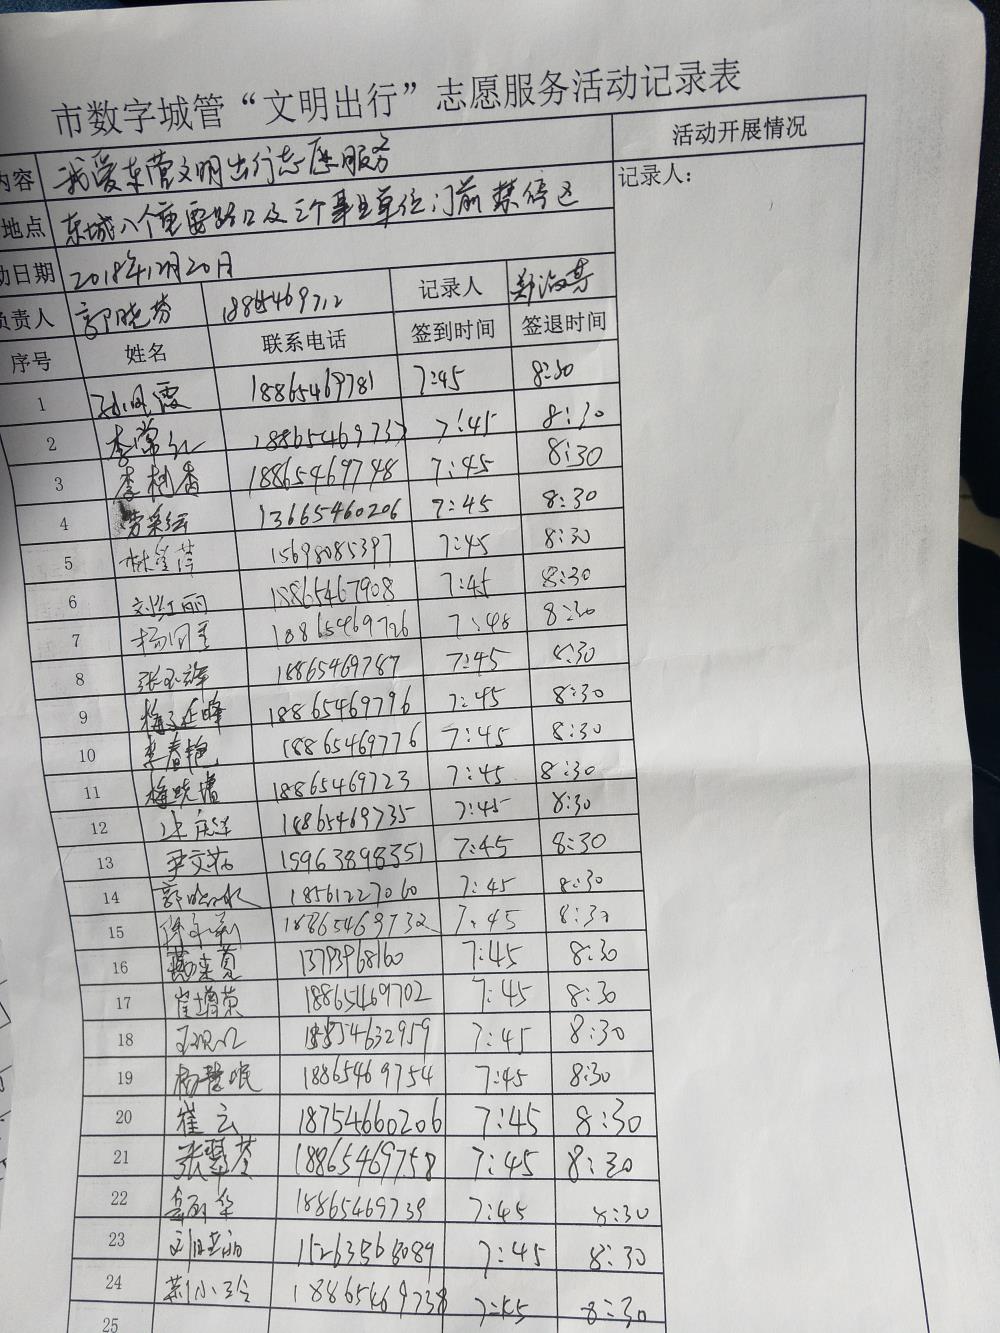 市数字城管“文明出行”志愿服务活动记录表
内容 我爱东营文明出行志愿服务 活动开展情况
地点 东城八个重要路口及三个事业单位门前禁停区 记录人：
动日期 2018年12月20日
负责人 郭晓芬 18865469712 记录人 郑海燕
序号 姓名 联系电话 签到时间 签退时间
1 孙凤霞 18865469781 7:45 8:30
2 李常红 18865469737 7:45 8:30
3 李桂香 18865469748 7:45 8:30
4 劳彩云 13665460206 7:45 8:30
5 15698085397 7:45 8:30
6 刘红丽 18865467908 7:45 8:30
7 18865469726 7:45 8:30
8 张玉辉 18865469787 7:45 8:30
9 18865469796 7:45 8:30
10 李春艳 18865469776 7:45 8:30
11 18865469723 7:45 8:30
12 18865469735 7:45 8:30
13 15963898351 7:45 8:30
14 18561227060 7:45 8:30
15 18865469732 7:45 8:30
16 13793968160 7:45 8:30
17 崔增荣 18865469702 7:45 8:30
18 18854632959 7:45 8:30
19 18865469754 7:45 8:30
20 崔云 18754660206 7:45 8:30
21 张翠荃 18865469758 7:45 8:30
22 18865469739 7:45 8:30
23 15263868089 7:45 8:30
24 荆小玲 18865469738 7:45 8:30
25